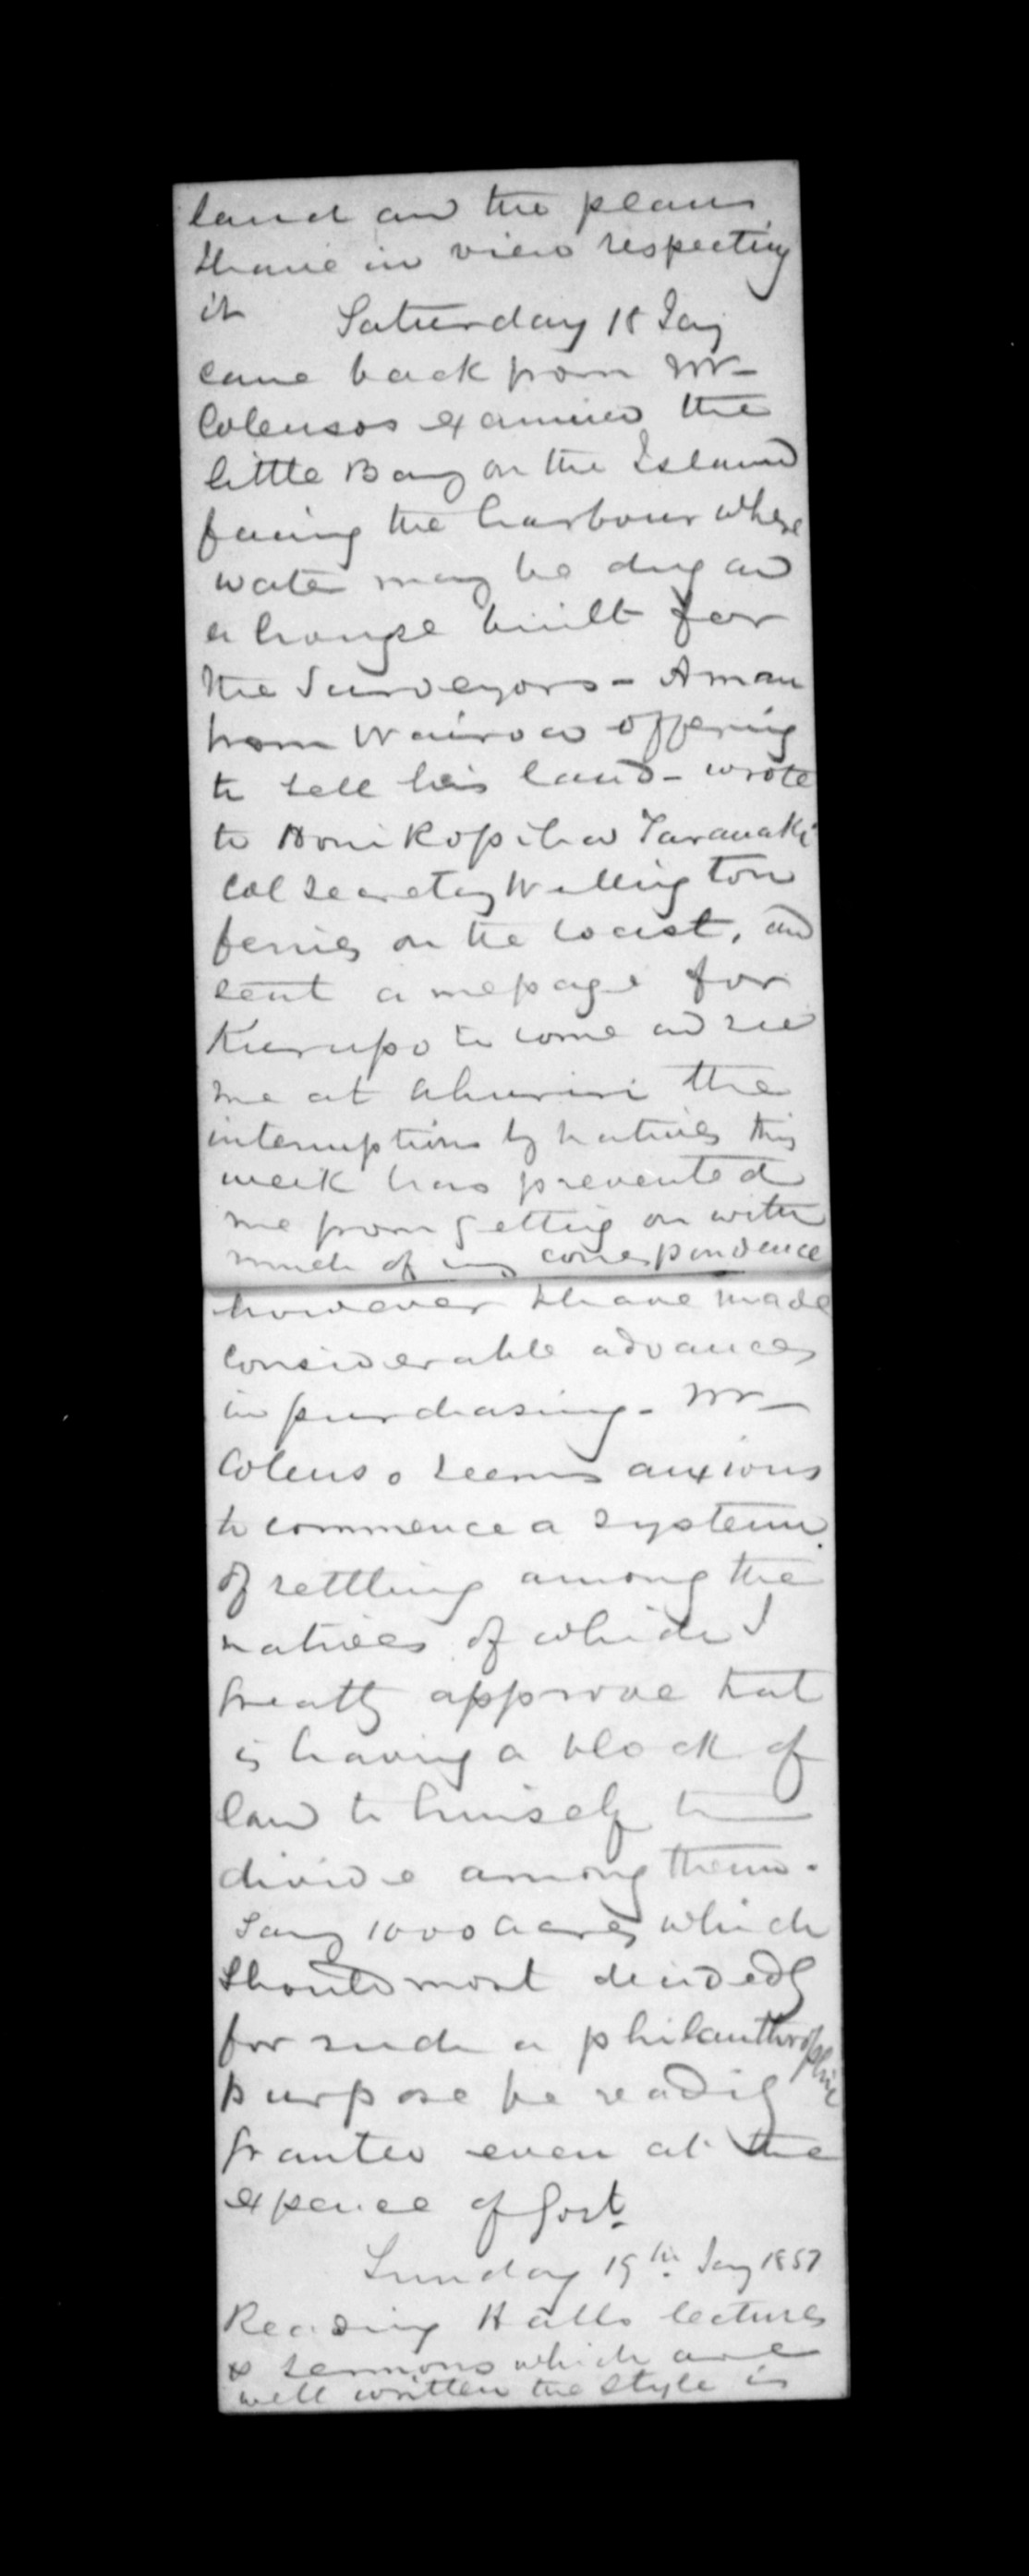 land and the plans
I have in view respecting
it Saturday 18 Jany
came back from Mr
Colensos examined the
little Bay on the Island
facing the harbour where
water may be dug and
a house built for
the Surveyors - A man
from Wairoa offering
to sell his land - wrote
to Honi Ropiha Taranaki
Col Secretay Wellington
ferries on the coast, and
sent a message for
Kurupo to come and see
me at Ahuriri the
interruptions by natives this
week has prevented
me from getting on with
much of my correspondence
however I have made
considerable advances
in purchasing - Mr
Colenso seems anxious
to commence a system
of settling among the
natives of which I
greatly approve that
is having a block of
land to himself to
divide among them.
Say 1000 acres which
should most decidedly
for such a philanthrophic
purpose be readily
granted even at the
expence of Govt
Sunday 19th Jany 1851
Reading Halls lectures
& sermons which are
well written the style is